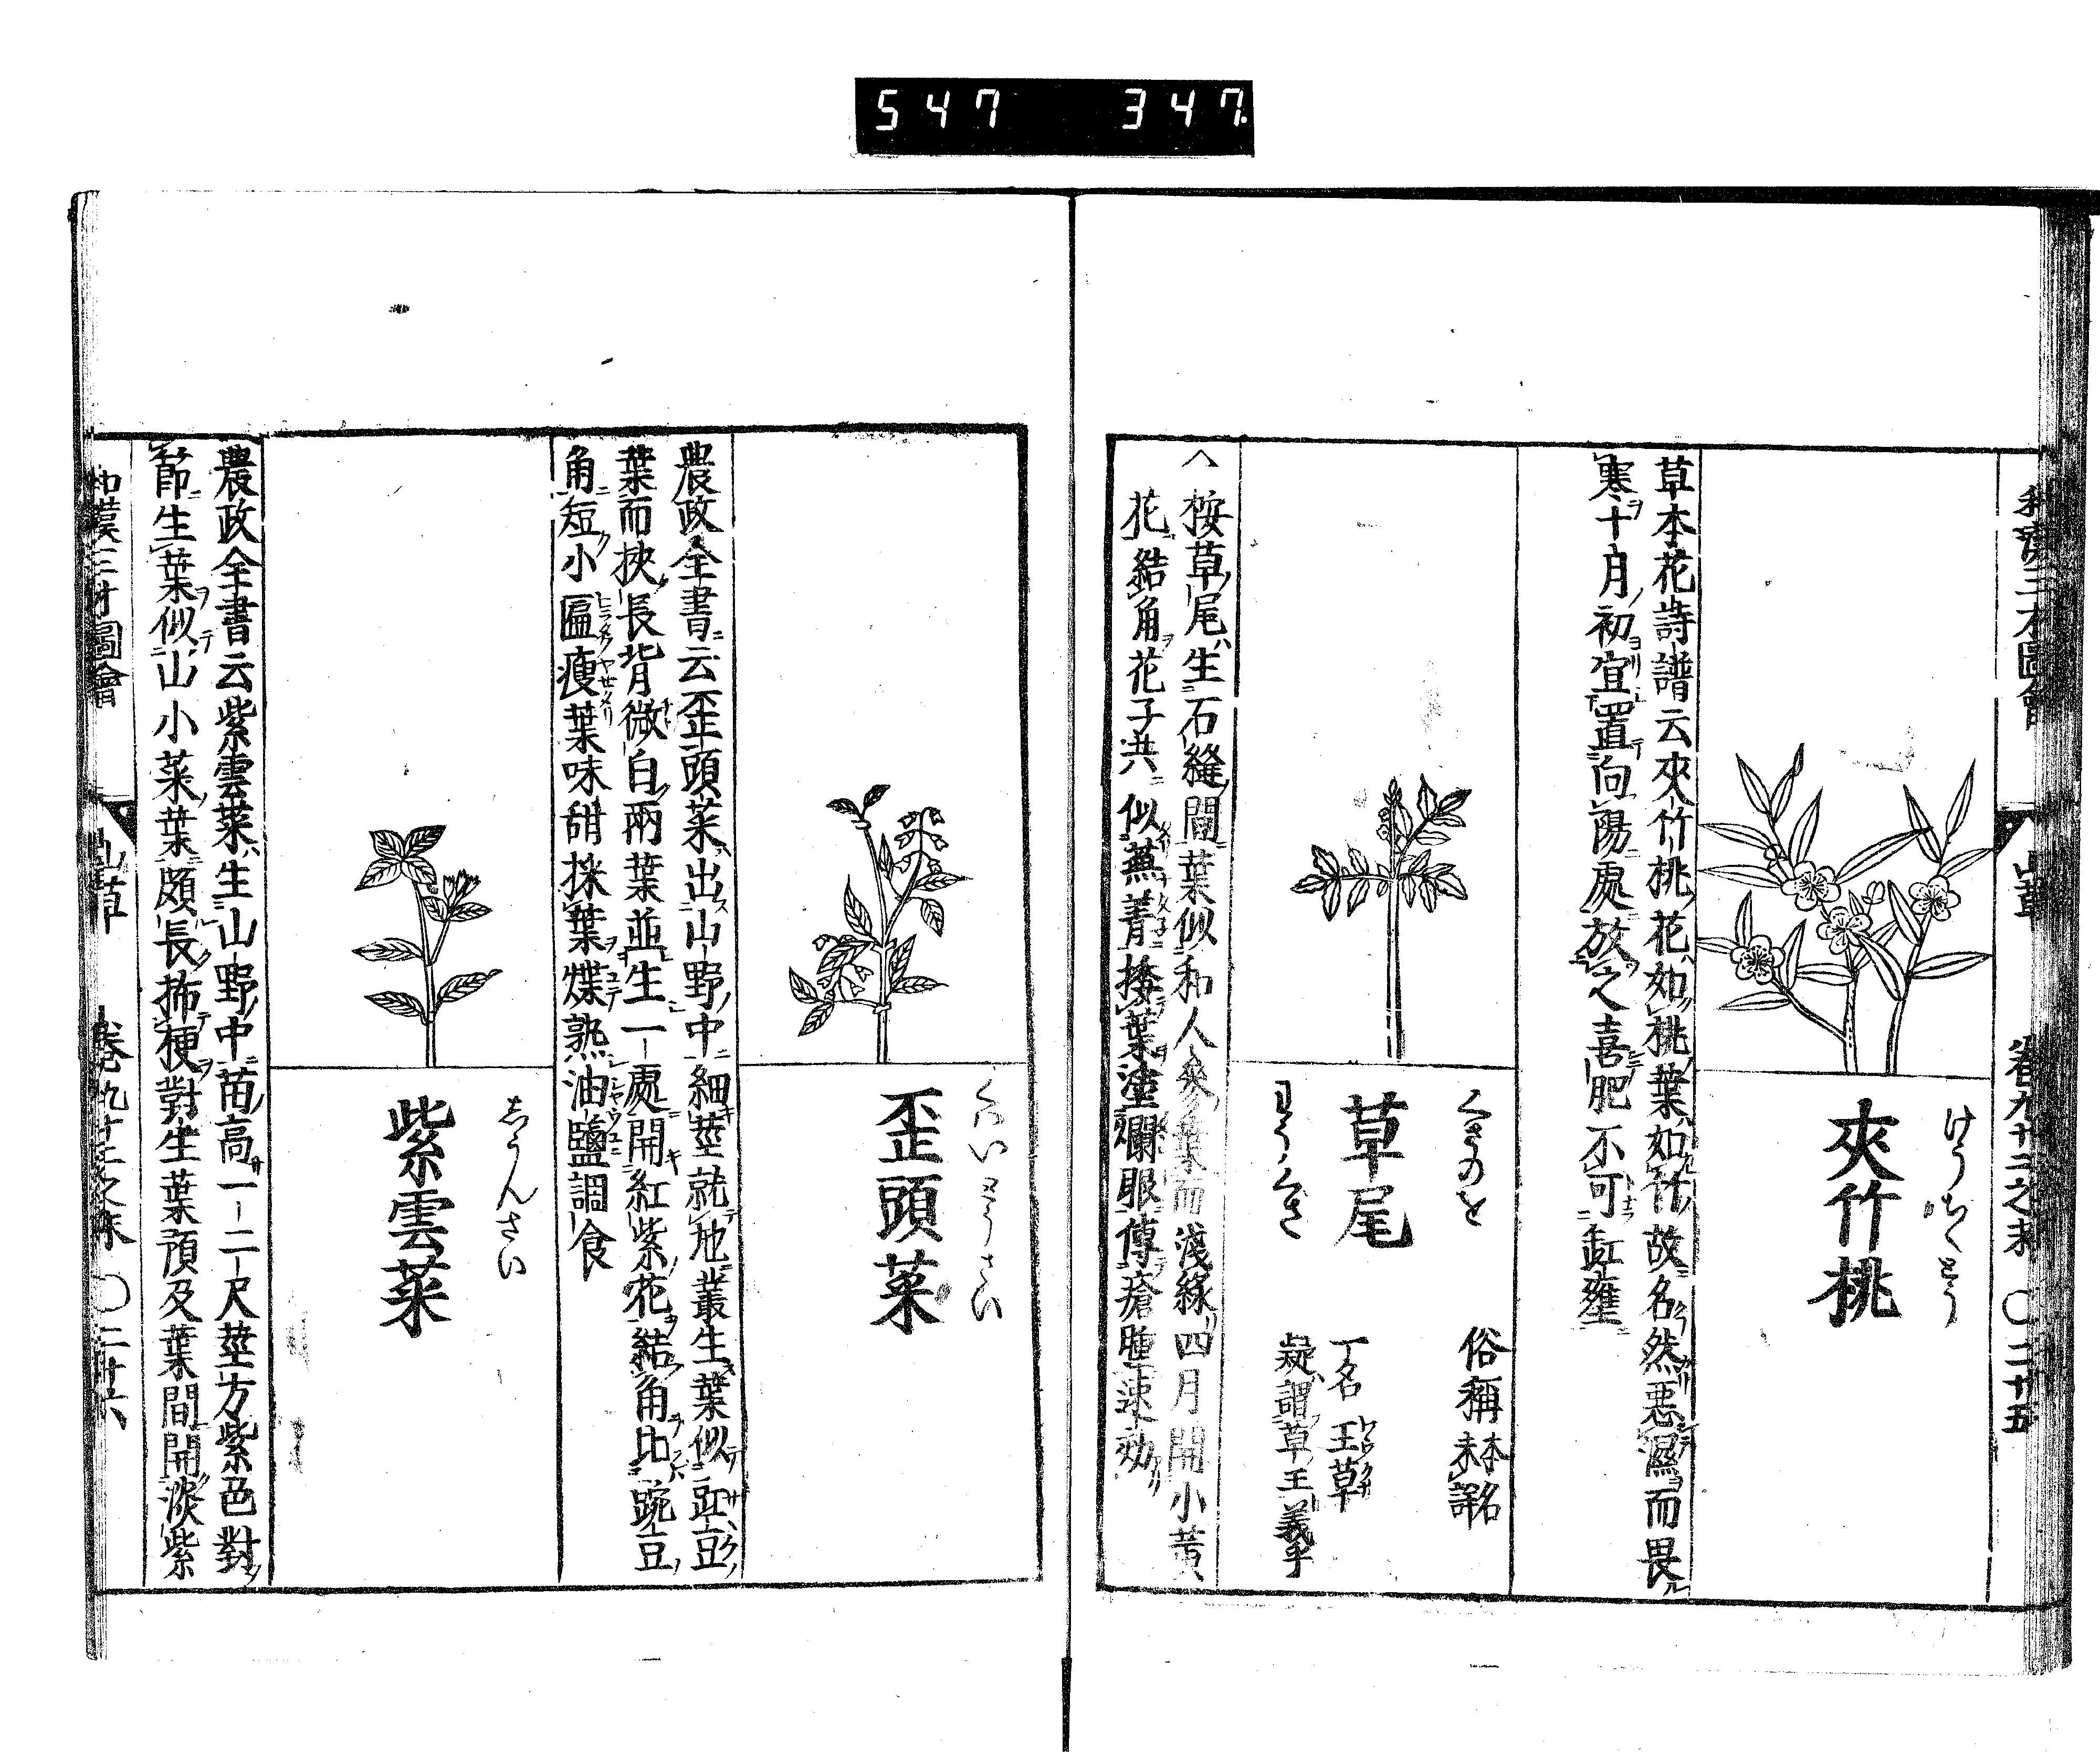 547 347
和漢三才圖會 山草 卷九十二之末 〇二十五
けうちくとう
夾竹桃
草本花詩譜云夾竹桃花如桃葉如竹故名然惡濕而畏
寒十月初宜置向陽處放之喜肥不可缸壅
くさのを
草尾
わうくさ
俗稱
本名
未詳
一名王草
疑謂草王義乎
△按草尾生石縫間葉似和人參葉而淺綠四月開小黄
花結角花子共似蕪菁挼葉塗爛眼傅瘡腫速効
くわいとうさい
歪頭菜
農政全書云歪頭菜出山野中細莖就地叢生葉似豇豆
葉而挾長背微白兩葉並生一處開紅紫花結角比豌豆
角短小匾瘦葉味甜採葉煠熟油鹽調食
しうんさい
紫雲菜
農政全書云紫雲菜生山野中苗高一二尺莖方紫色對
節生葉似山小菜葉頗長抪梗對生葉頂及葉間開淡紫
和漢三才圖會 山草 卷九十二之末 〇二十六